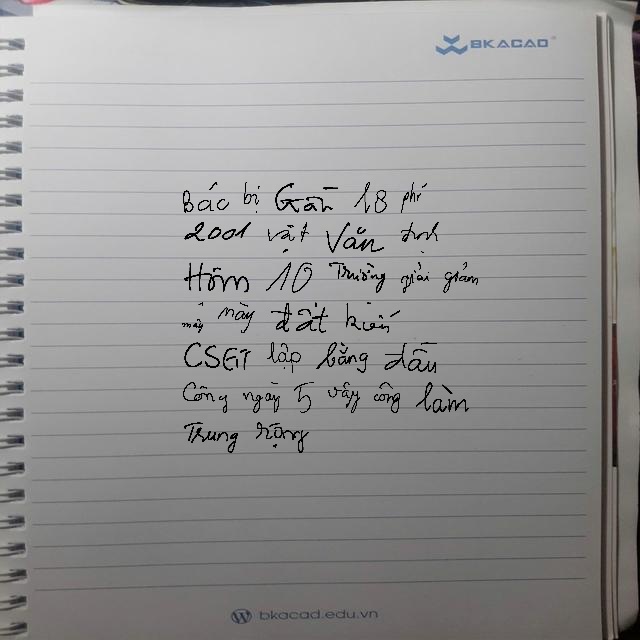 BKACAD
Bác bị Gần 18 phí
2001 vật Văn định
Hôm 10 Trường giải giảm
mấy này đất kiến
CSGT lập bằng dấu
Công ngày 5 vây công làm
Trung rộng
bkacad.edu.vn